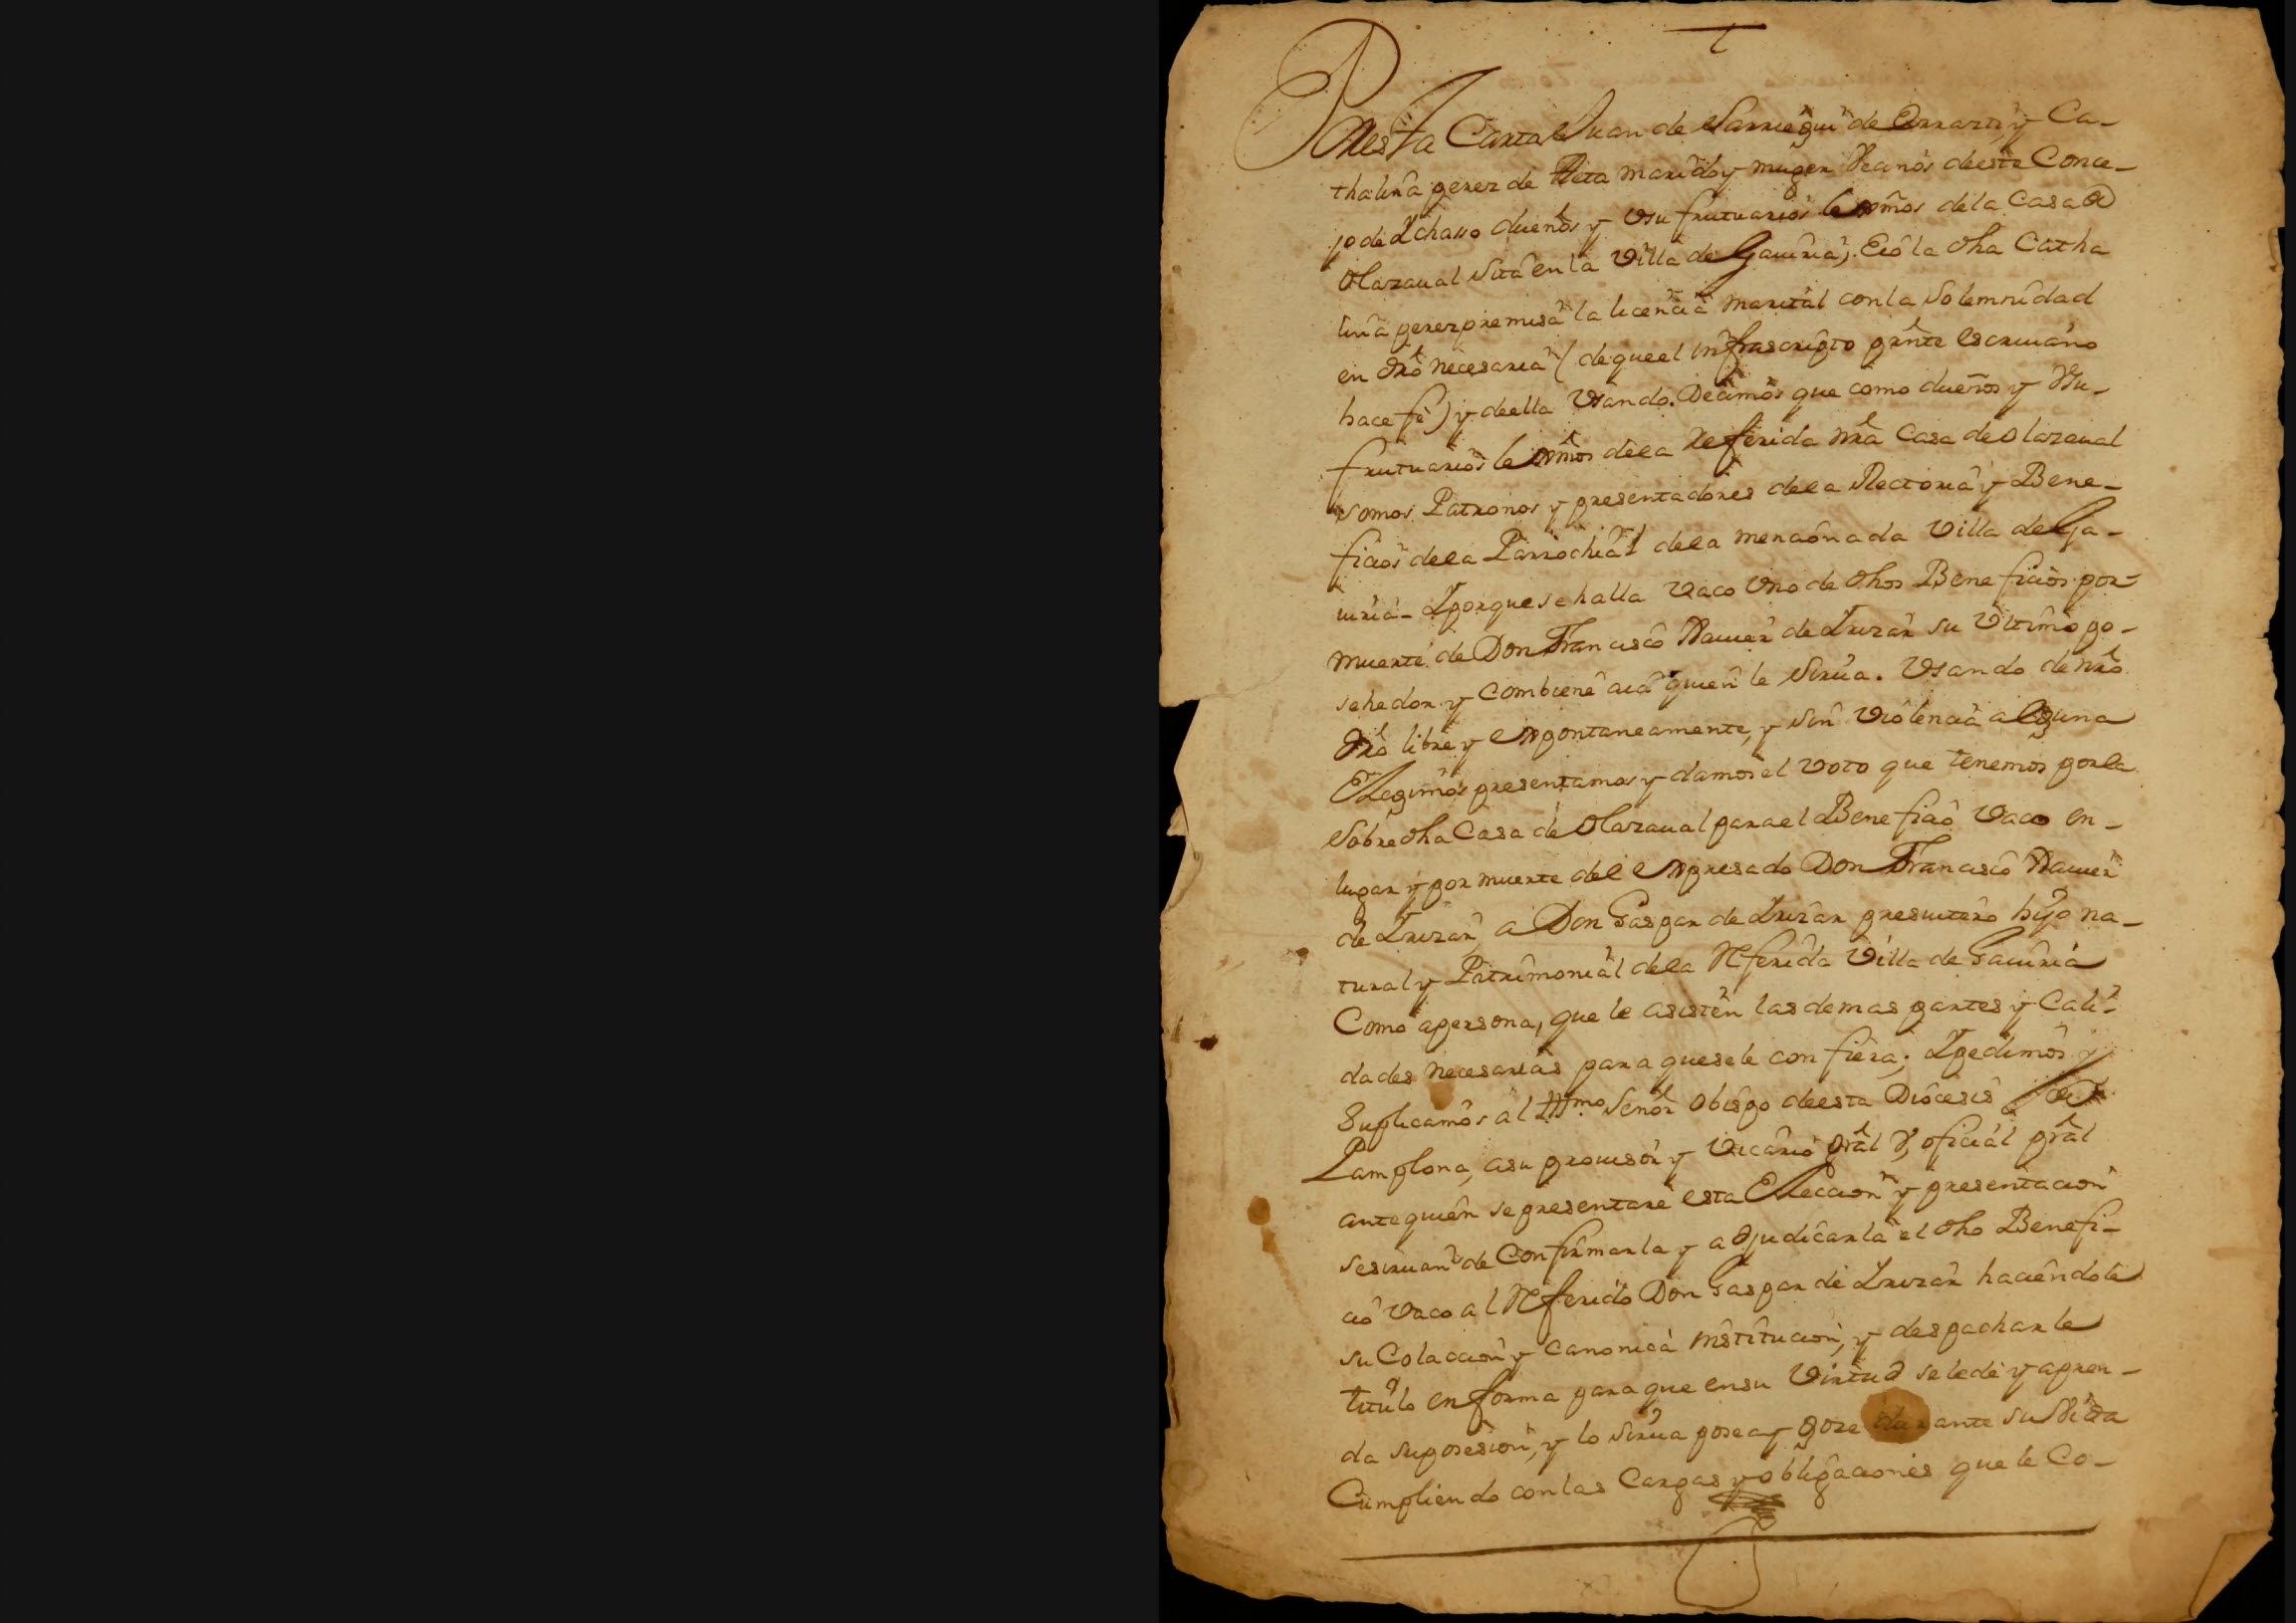 Por esta Carta Juan de Sarriegui de Errarte, y Ca-
thalina perez de Pleta marido y muger Vecinos de este Conce-
jo de Ychaso dueños y Vsufrutuarios legmos de la Casa de
Olazaual Sita en la Villa de Gauiria; E io la dha Catha
lina perez premisa la licencia marital con la Solemnidad
en dro necesaria (de que el infrascripto pnte escriuano
hace fè) y de ella Vsando. Decimos que como dueños y Vsu-
frutuarios legmos de la referida nra Casa de Olazaual
somos Patronos y presentadores de la Rectoria y Bene-
ficios de la Parrochial de la mencionada Villa de Ga-
uiria - Y porque se halla Vaco Vno de dhos Beneficios por
muerte de Don Francisco Xauier de Yrizar su Vltimo po-
sehedor y combiene aia quien le Sirua. Vsando de nro
dro libre y espontaneamente, y sin Violencia alguna
Elegimos presentamos y damos el voto que tenemos por la
Sobredha Casa de Olazaual para el Beneficio Vaco en
lugar y por muerte del expresado Don Francisco Xauier
de Yrizar a Don Gaspar de Yrizar presuitero hijo na-
tural y Patrimonial de la Referida Villa de Gauiria
Como a persona, que le asisten las demas partes y Cali-
dades necesarias para que se le confiera; Y pedimos y
Suplicamos al Yllmo Señor Obispo de esta Diocesis de
Pamplona, a su prouisor y Vicario gral y oficial pral
ante quien se presentare esta Eleccion y presentacion
se siruan de Confirmarla y adjudicarla el dho Benefi-
cio Vaco al Referido Don Gaspar de Yrizar haciendole
su Colaccion y Canonica institucion, y despacharle
titulo en forma para que en su Virtud se le dè y apren-
da su posesion, y lo Sirua posea y goze durante su Vida
Cumpliendo con las Cargas y obligaciones que le Co-